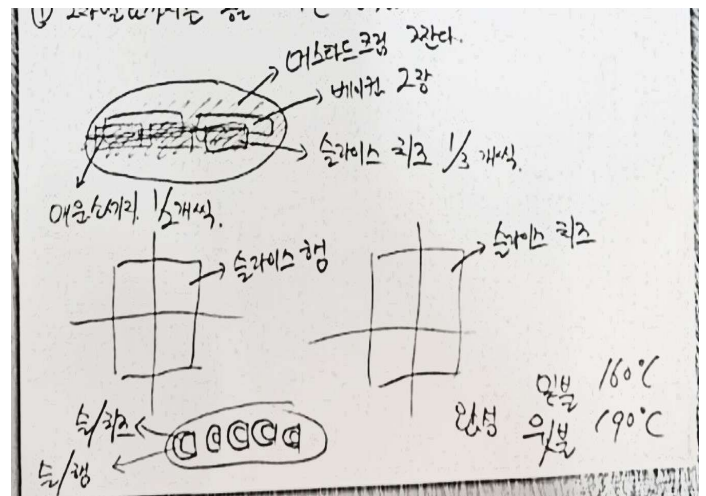 머스타드크림 2잔다.
베이컨 2장
슬라이스 치즈 1/3 개씩.
매운소세지 1/2개씩.
슬라이스 햄
슬라이스 치즈
슬/치즈
슬/햄
밑불 160℃
완성 윗불 190℃